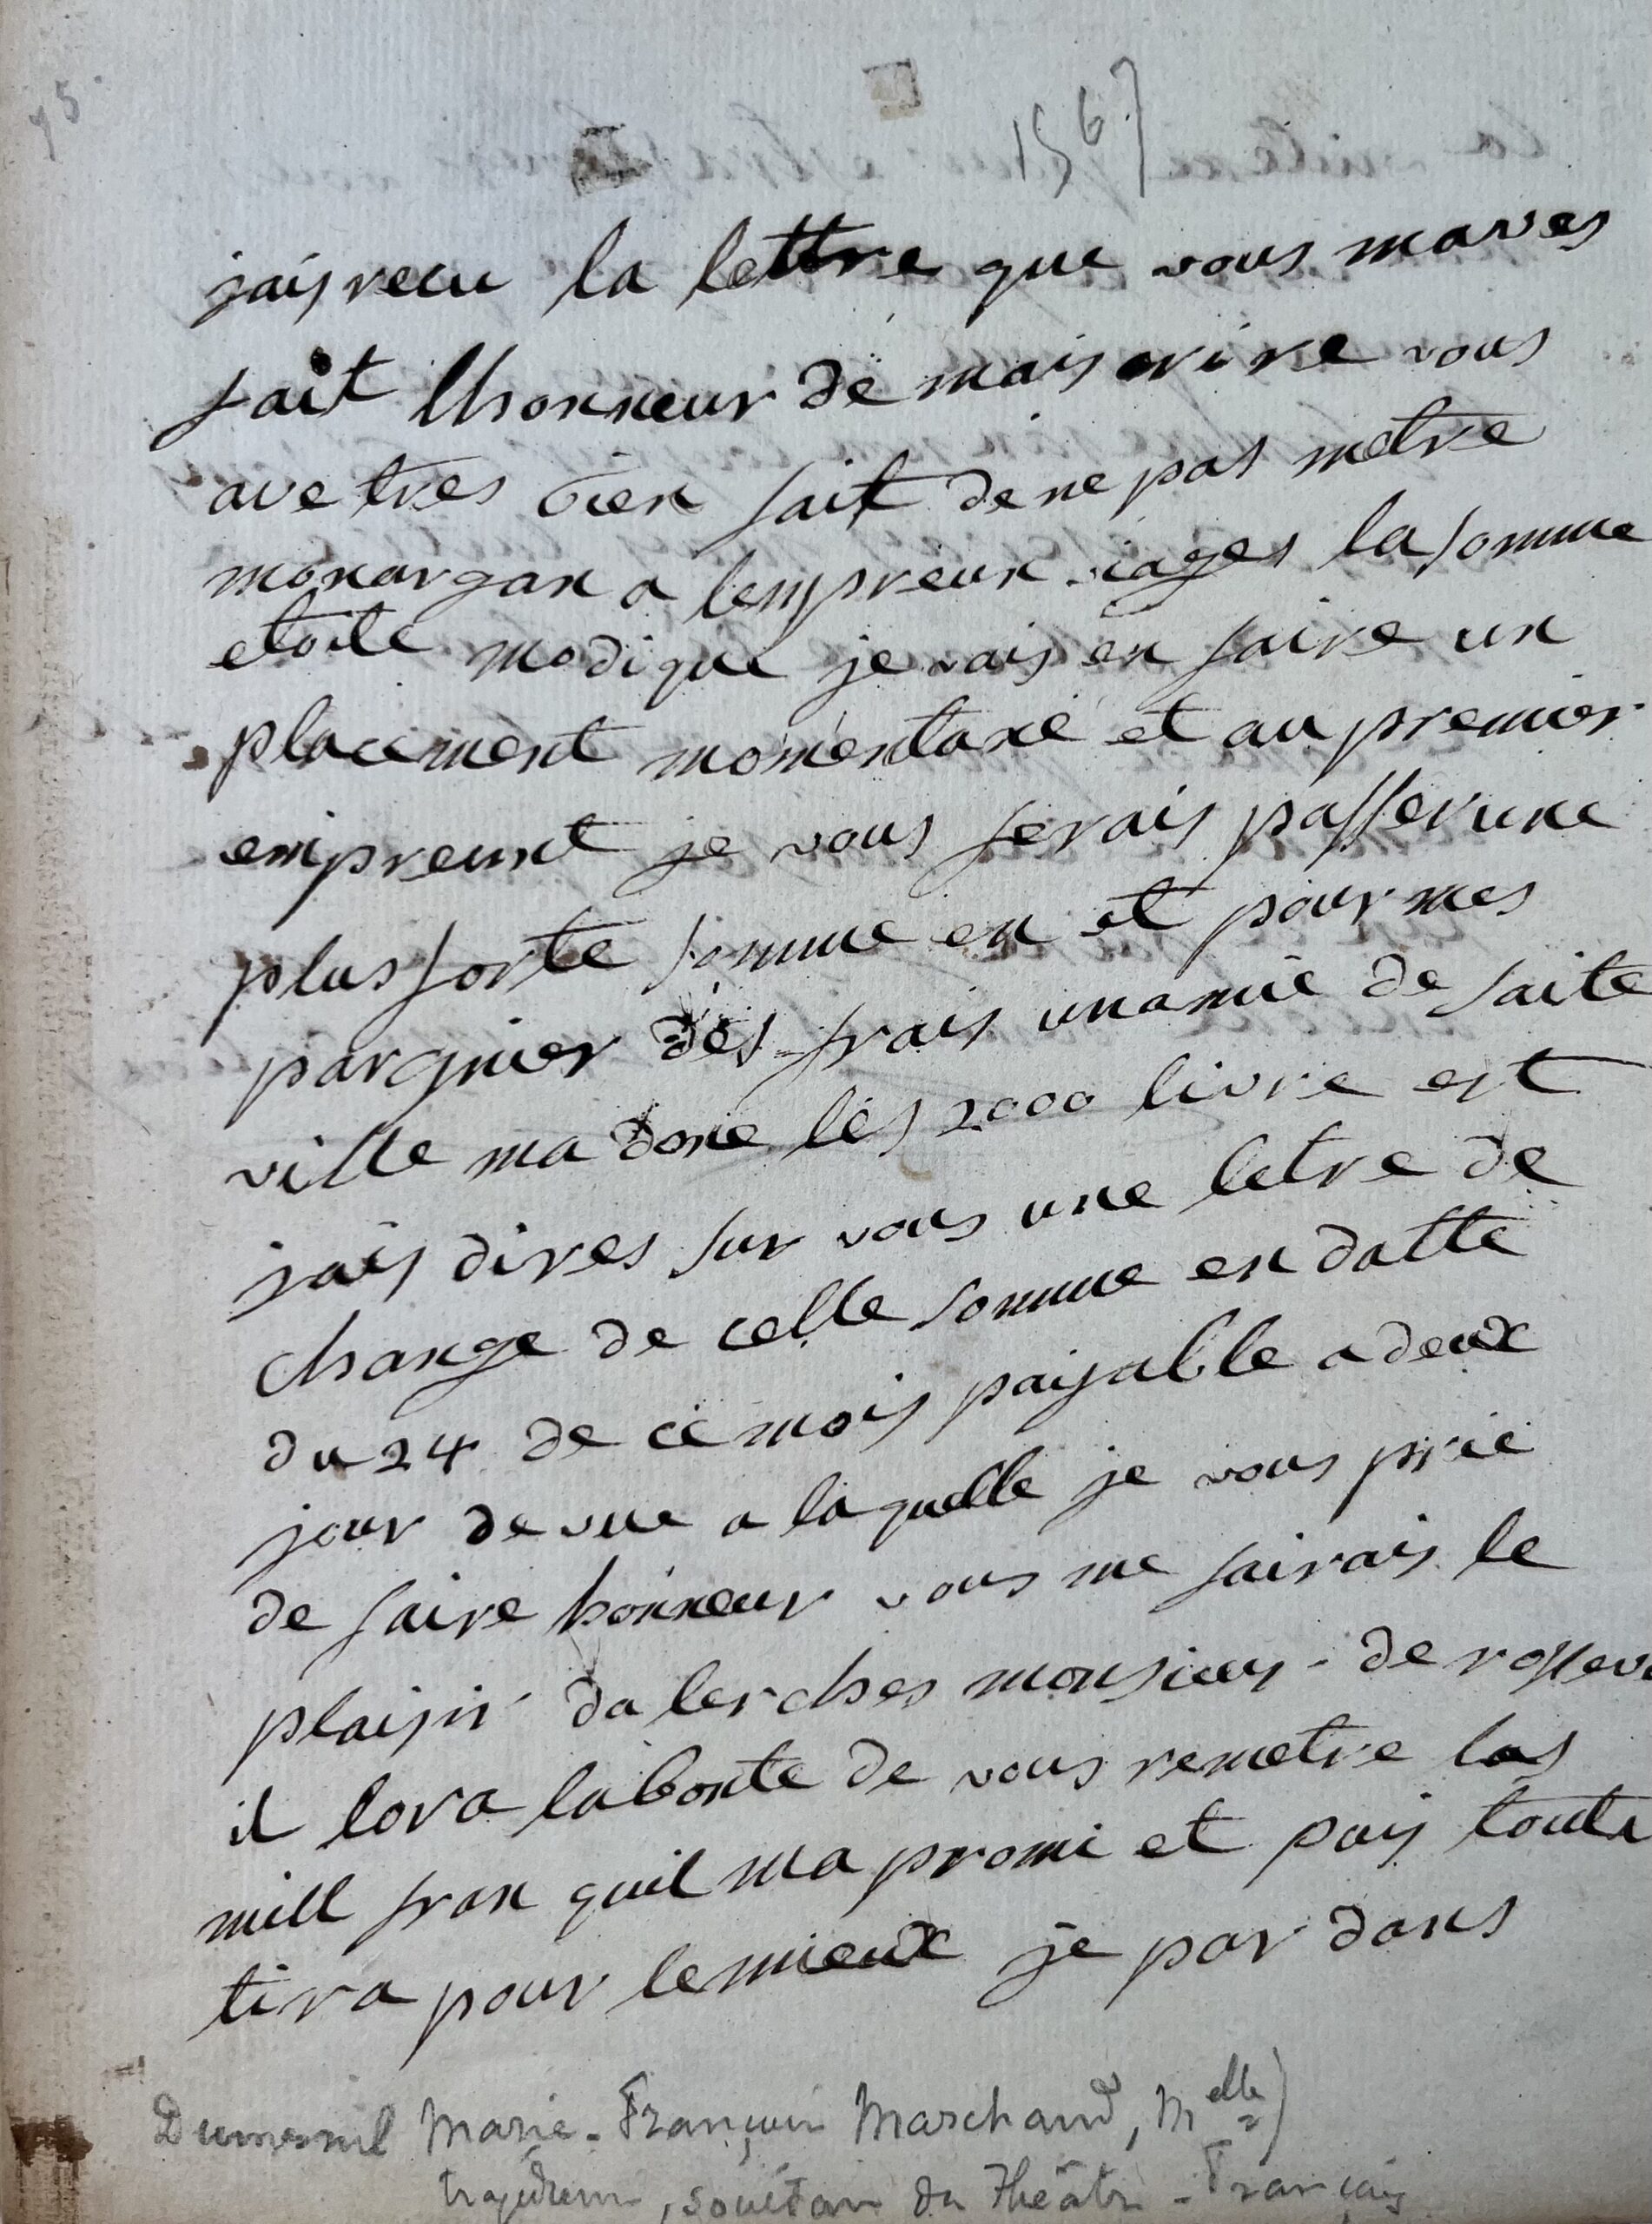 95
1567
jaiy recu la lettre que vous maves
fait lhonneur de maiy crire vous
ave tres bien fait de ne pas metre
monargan a lempreun viages la somme
etoite modique je vaiy en faire un
placement momentane et au premier
empreunt je vous ferais passer une
plus forte somme en et pour mes
pargnier des frais unamie de faite
ville ma done les 2000 livre est
jaiy dires sur vous une letre de
change de celle somme en datte
du 24 de ce mois payable a deux
jour de vue a laquelle je vous prie
de faire honneur vous me fairais le
plaisir da ler ches monsieur de
il lora la bonte de vous remetre las
mill fran quil ma promi et puis toute
tira pour le mieux je par dans
Dumesnil Marie-François Marchand, Melle)
tragédienne, sociétaire du Théâtre-Français